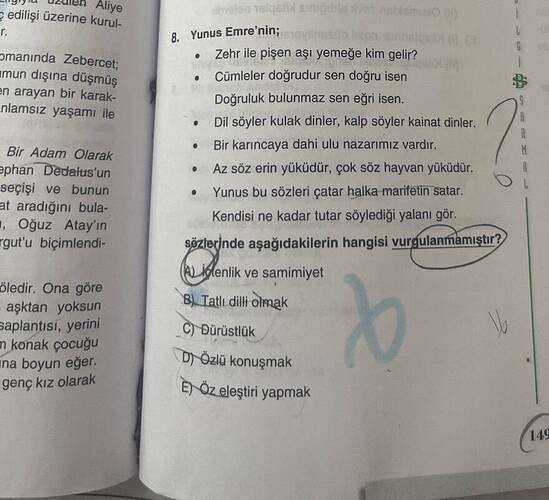 Aliye
ç edilişi üzerine kurul-
r.
omanında Zebercet;
mun dışına düşmüş
en arayan bir karak-
nlamsız yaşamı ile
Bir Adam Olarak
ephan Dedalus'un
seçişi ve bunun
at aradığını bula-
, Oğuz Atay'ın
rgut'u biçimlendi-
öledir. Ona göre
aşktan yoksun
saplantısı, yerini
n konak çocuğu
ına boyun eğer.
genç kız olarak
8. Yunus Emre'nin;
• Zehr ile pişen aşı yemeğe kim gelir?
• Cümleler doğrudur sen doğru isen
Doğruluk bulunmaz sen eğri isen.
• Dil söyler kulak dinler, kalp söyler kainat dinler.
• Bir karıncaya dahi ulu nazarımız vardır.
• Az söz erin yüküdür, çok söz hayvan yüküdür.
• Yunus bu sözleri çatar halka marifetin satar.
Kendisi ne kadar tutar söylediği yalanı gör.
sözlerinde aşağıdakilerin hangisi vurgulanmamıştır?
A) İçtenlik ve samimiyet
B) Tatlı dilli olmak
C) Dürüstlük
D) Özlü konuşmak
E) Öz eleştiri yapmak
149